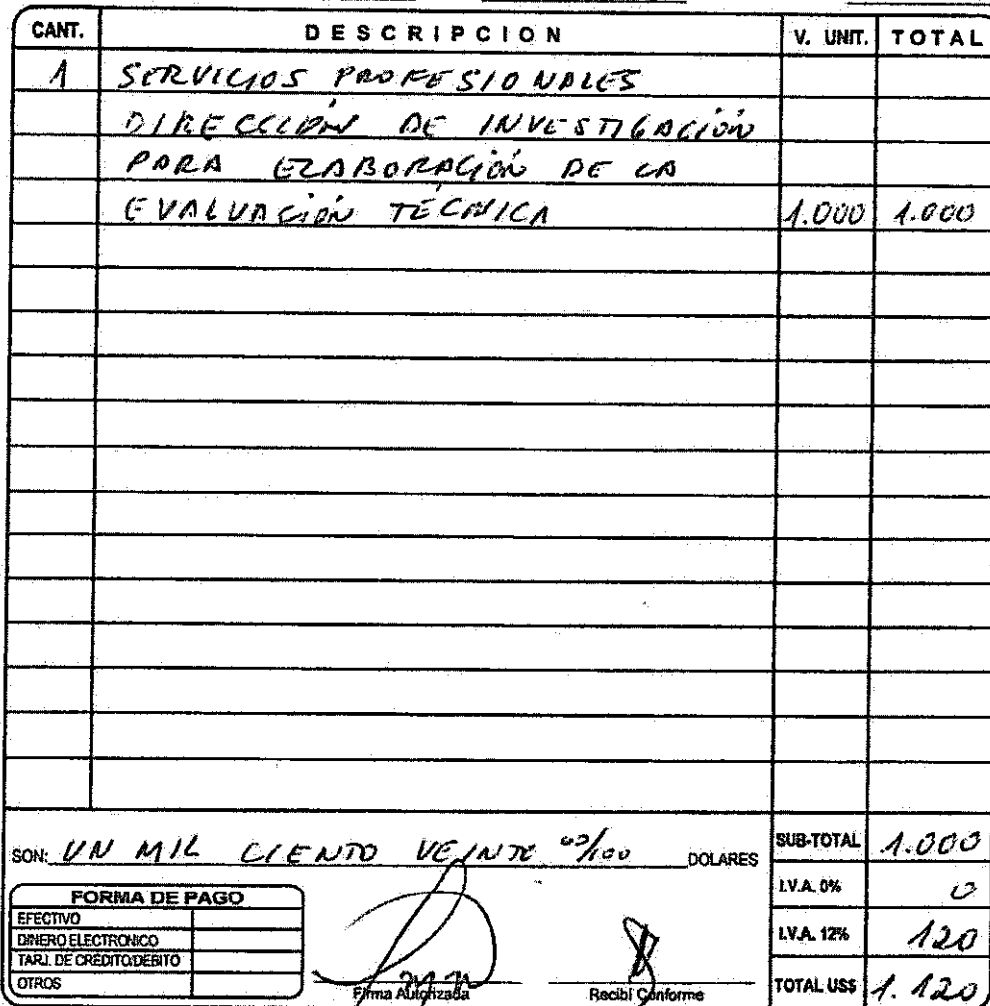 CANT. DESCRIPCION V. UNIT. TOTAL
1 SERVICIOS PROFESIONALES
DIRECCIÓN DE INVESTIGACIÓN
PARA ELABORACIÓN DE LA
EVALUACIÓN TÉCNICA 1.000 1.000
SON: UN MIL CIENTO VEINTE 00/100 DOLARES
SUB-TOTAL 1.000
I.V.A. 0% 0
I.V.A. 12% 120
TOTAL US$ 1.120
FORMA DE PAGO
EFECTIVO
DINERO ELECTRONICO
TARJ. DE CRÉDITO/DÉBITO
OTROS
Firma Autorizada
Recibí Conforme